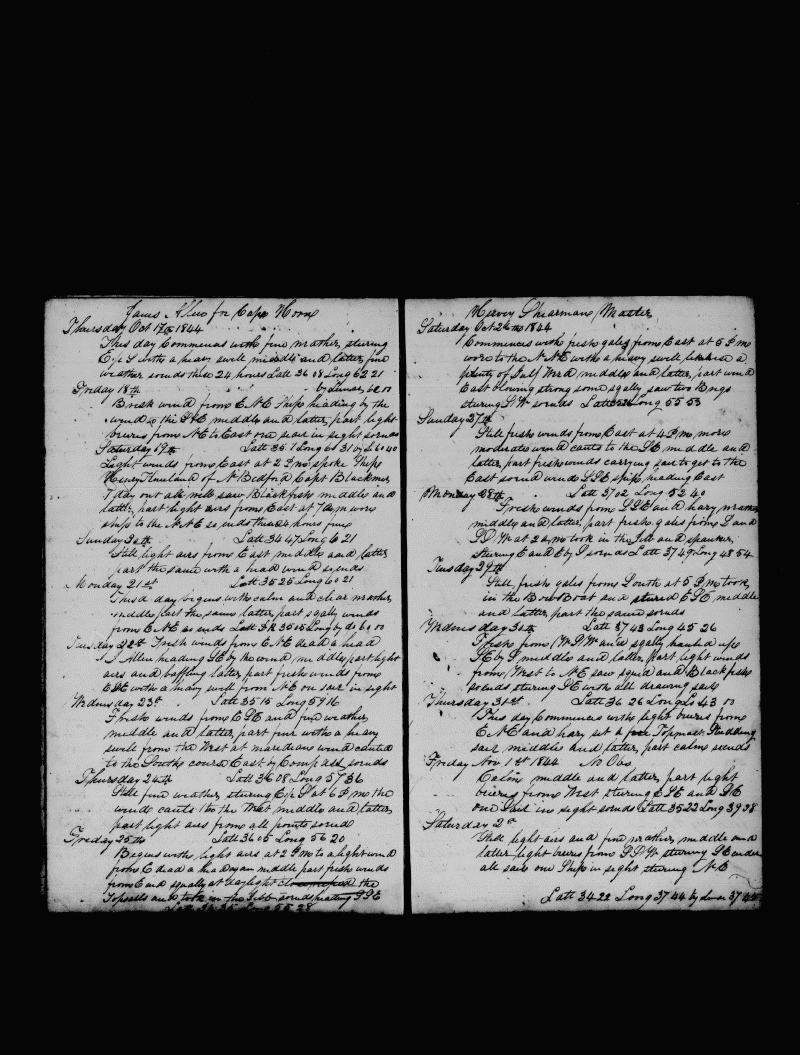 James Allen for Cape Horn
Thursday Oct 17th 1844
This day Commences with fine weather, stering
E by S with a heavy swell middle and latter fine
weather so ends these 24 hours Latt 36 08 Long 62 21
Friday 18th by Lunar 62 00
Brisk wind from E N E Ship heading by the
wind to the S E middle and latter part light
breezes from N E to East one sail in sight so ends
Saturday 19th Latt 35 7 Long 61 31 by L 60 40
Light winds from East at 2 P m spoke Ship
Henry Kneeland of N Bedford Capt Blackmer
7 day out all well saw Blackfish middle and
latter part light airs from East at 7 A m wore
ship to the N N E so ends these 24 hours fine
Sunday 20th Latt 34 47 Long 61 21
Still light airs from East middle and latter
part the same with a head wind so ends
Monday 21st Latt 35 25 Long 60 21
This day begins with calm and clear weather
middle part the same latter part sqally winds
from E N E so ends Latt D R 35 05 Long by do 60 00
Tuesday 22th Fresh winds from E N E dead a head
J Allen heading S E by the wind, middle part light
airs and baffling latter part fresh winds from
E S E with a heavy swell from N E on sail in sight
Wednesday 23th Latt 35 15 Long 59 16
Fresh winds from E S E and fine weather
middle and latter part fine with a heavy
swell from the West at meredian wind canted
to the South course East by Compass so ends
Thursday 24th Latt 36 08 Long 57 36
Still fine weather stering E by S at 6 P m the
wind cants to the West middle and latter
part light airs from all points so ends
Friday 25th Latt 36 05 Long 56 20
Begins with light airs at 2 P m to a light wind
from E dead a head again middle part fresh winds
from E and sqally at daylight the
Topsails and took in the Jibb so ends heading S S E
Latt 36 35 Long 55 28
Hervey Shearman Master
Saturday Oct 26th 1844
Commences with fresh gales from East at 5 P m
wore to the N N E with a heavy swell, likewise a
plenty of Gulf Weed middle and latter part wind
East blowing strong some sqally saw two Brigs
stering S W so ends Latt Long 55 53
Sunday 27th
Still fresh winds from East at 4 P m more
moderate wind cants to the S E middle and
latter part fresh winds carrying sail to get to the
East so end wind S S E ship heading East
Monday 28th Latt 37 02 Long 52 40
Fresh winds from S S E and hazy weather
middle and latter part fresh gales from S and
S S W at 2 A m took in the Jibb and spanker
stering E and E by S so ends Latt 37 49 Long 48 54
Tuesday 29th
Still fresh gales from South at 5 P m took
in the Bow Boat and stered E S E middle
and latter part the same so ends
Wednesday 30th Latt 37 43 Long 45 26
Fresh from W S W and sqally hauled up
S E by S middle and latter part light winds
from West to N E saw squid and Blackfish
so ends stering S E with all drawing sail
Thursday 31st Latt 36 26 Long 43 00
This day Commences with light breezes from
E N E and hazy set a fore Topmast Studding
sail middle and latter part calm so ends
Friday Nov 1st 1844 No Obs
Calm middle and latter part light
breezes from West stering E S E and S E
one Sail in sight so ends Latt 35 22 Long 39 38
Saturday 2d
Still light airs and fine weather, middle and
latter light breezes from S S W stering S E under
all sail one Ship in sight stering N E
Latt 34 22 Long 37 44 by Lunar 37